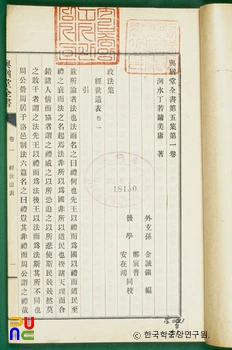 與猶堂全書第五集第一卷
洌水丁若鏞美庸 著
外玄孫 金誠鎭 編
後學 鄭寅普 同校
安在鴻
政法集
經世遺表 卷一
引
玆所論者法也法而名之曰禮何也先王以禮而爲國以禮而道民至
禮之衰而法之名起焉法非所以爲國非所以道民也揆諸天理而合
錯諸人情而協者謂之禮威之以所恐迫之以所悲使斯民兢兢然莫
之敢干者謂之法先王以禮而爲法後王以法而爲法斯其所不同也
周公營周居于洛邑制法六篇名之曰禮豈其非禮而周公謂之禮哉
與猶堂全書
卷一 經世遺表
18150
한국학중앙연구원